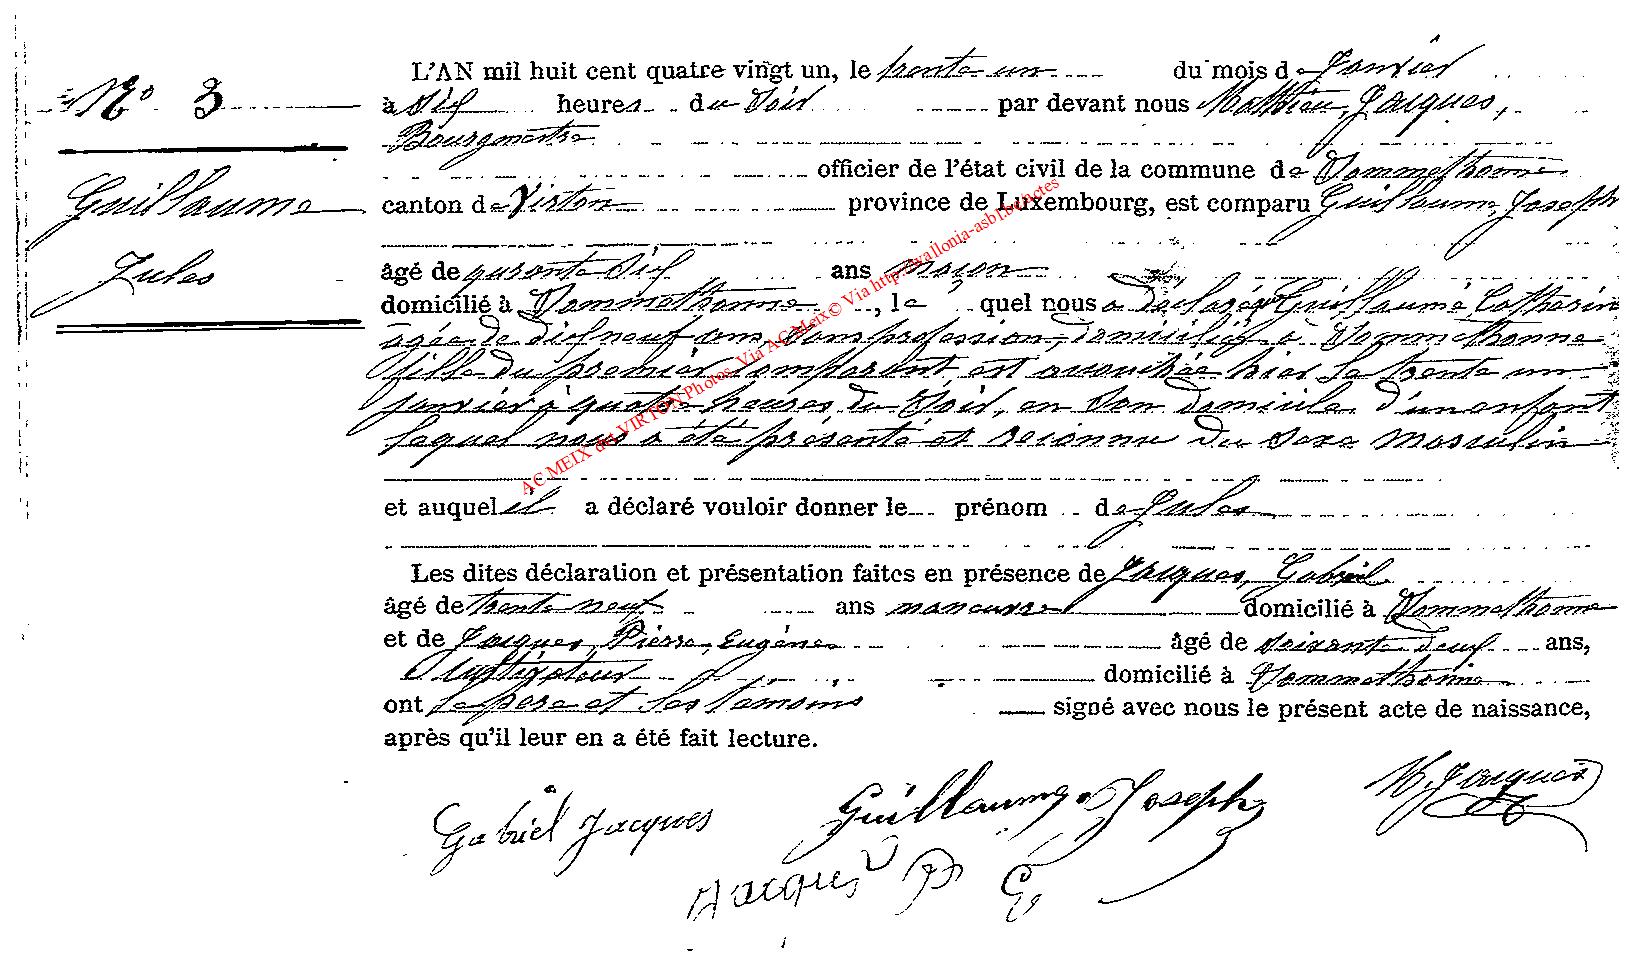 L'AN mil huit cent quatre vingt un, le trente un du mois de Janvier
N° 3
à six heures du Soir par devant nous Mathieu, Jacques,
Bourgmestre
officier de l'état civil de la commune de Sommethonne
Guillaume
canton de Virton province de Luxembourg, est comparu Guillaume, Joseph
Jules
âgé de quarante six ans maçon
domicilié à Sommethonne, le quel nous a déclaré Guillaume Catherin
agée de dix neuf ans, sans profession, domiciliée à Sommethonne
fille du premier comparant, est accouchée hier le trente un
janvier à quatre heures du Soir, en son domicile d'un enfant
lequel nous a été présenté et reconnu du sexe masculin
et auquel il a déclaré vouloir donner le prénom de Jules
Les dites déclaration et présentation faites en présence de Jacques, Gabriel
âgé de trente neuf ans manœuvre domicilié à Sommethonne
et de Jacques, Pierre, Eugène âgé de soixante deux ans,
Cultivateur domicilié à Sommethonne
ont le père et les témoins signé avec nous le présent acte de naissance,
après qu'il leur en a été fait lecture.
M. Jacques
Guillaume Joseph
Gabriel Jacques
Jacques P E
AC MEIX dvt VIRTON Photos Via AC Meix© Via http://wallonia-asbl.be/actes